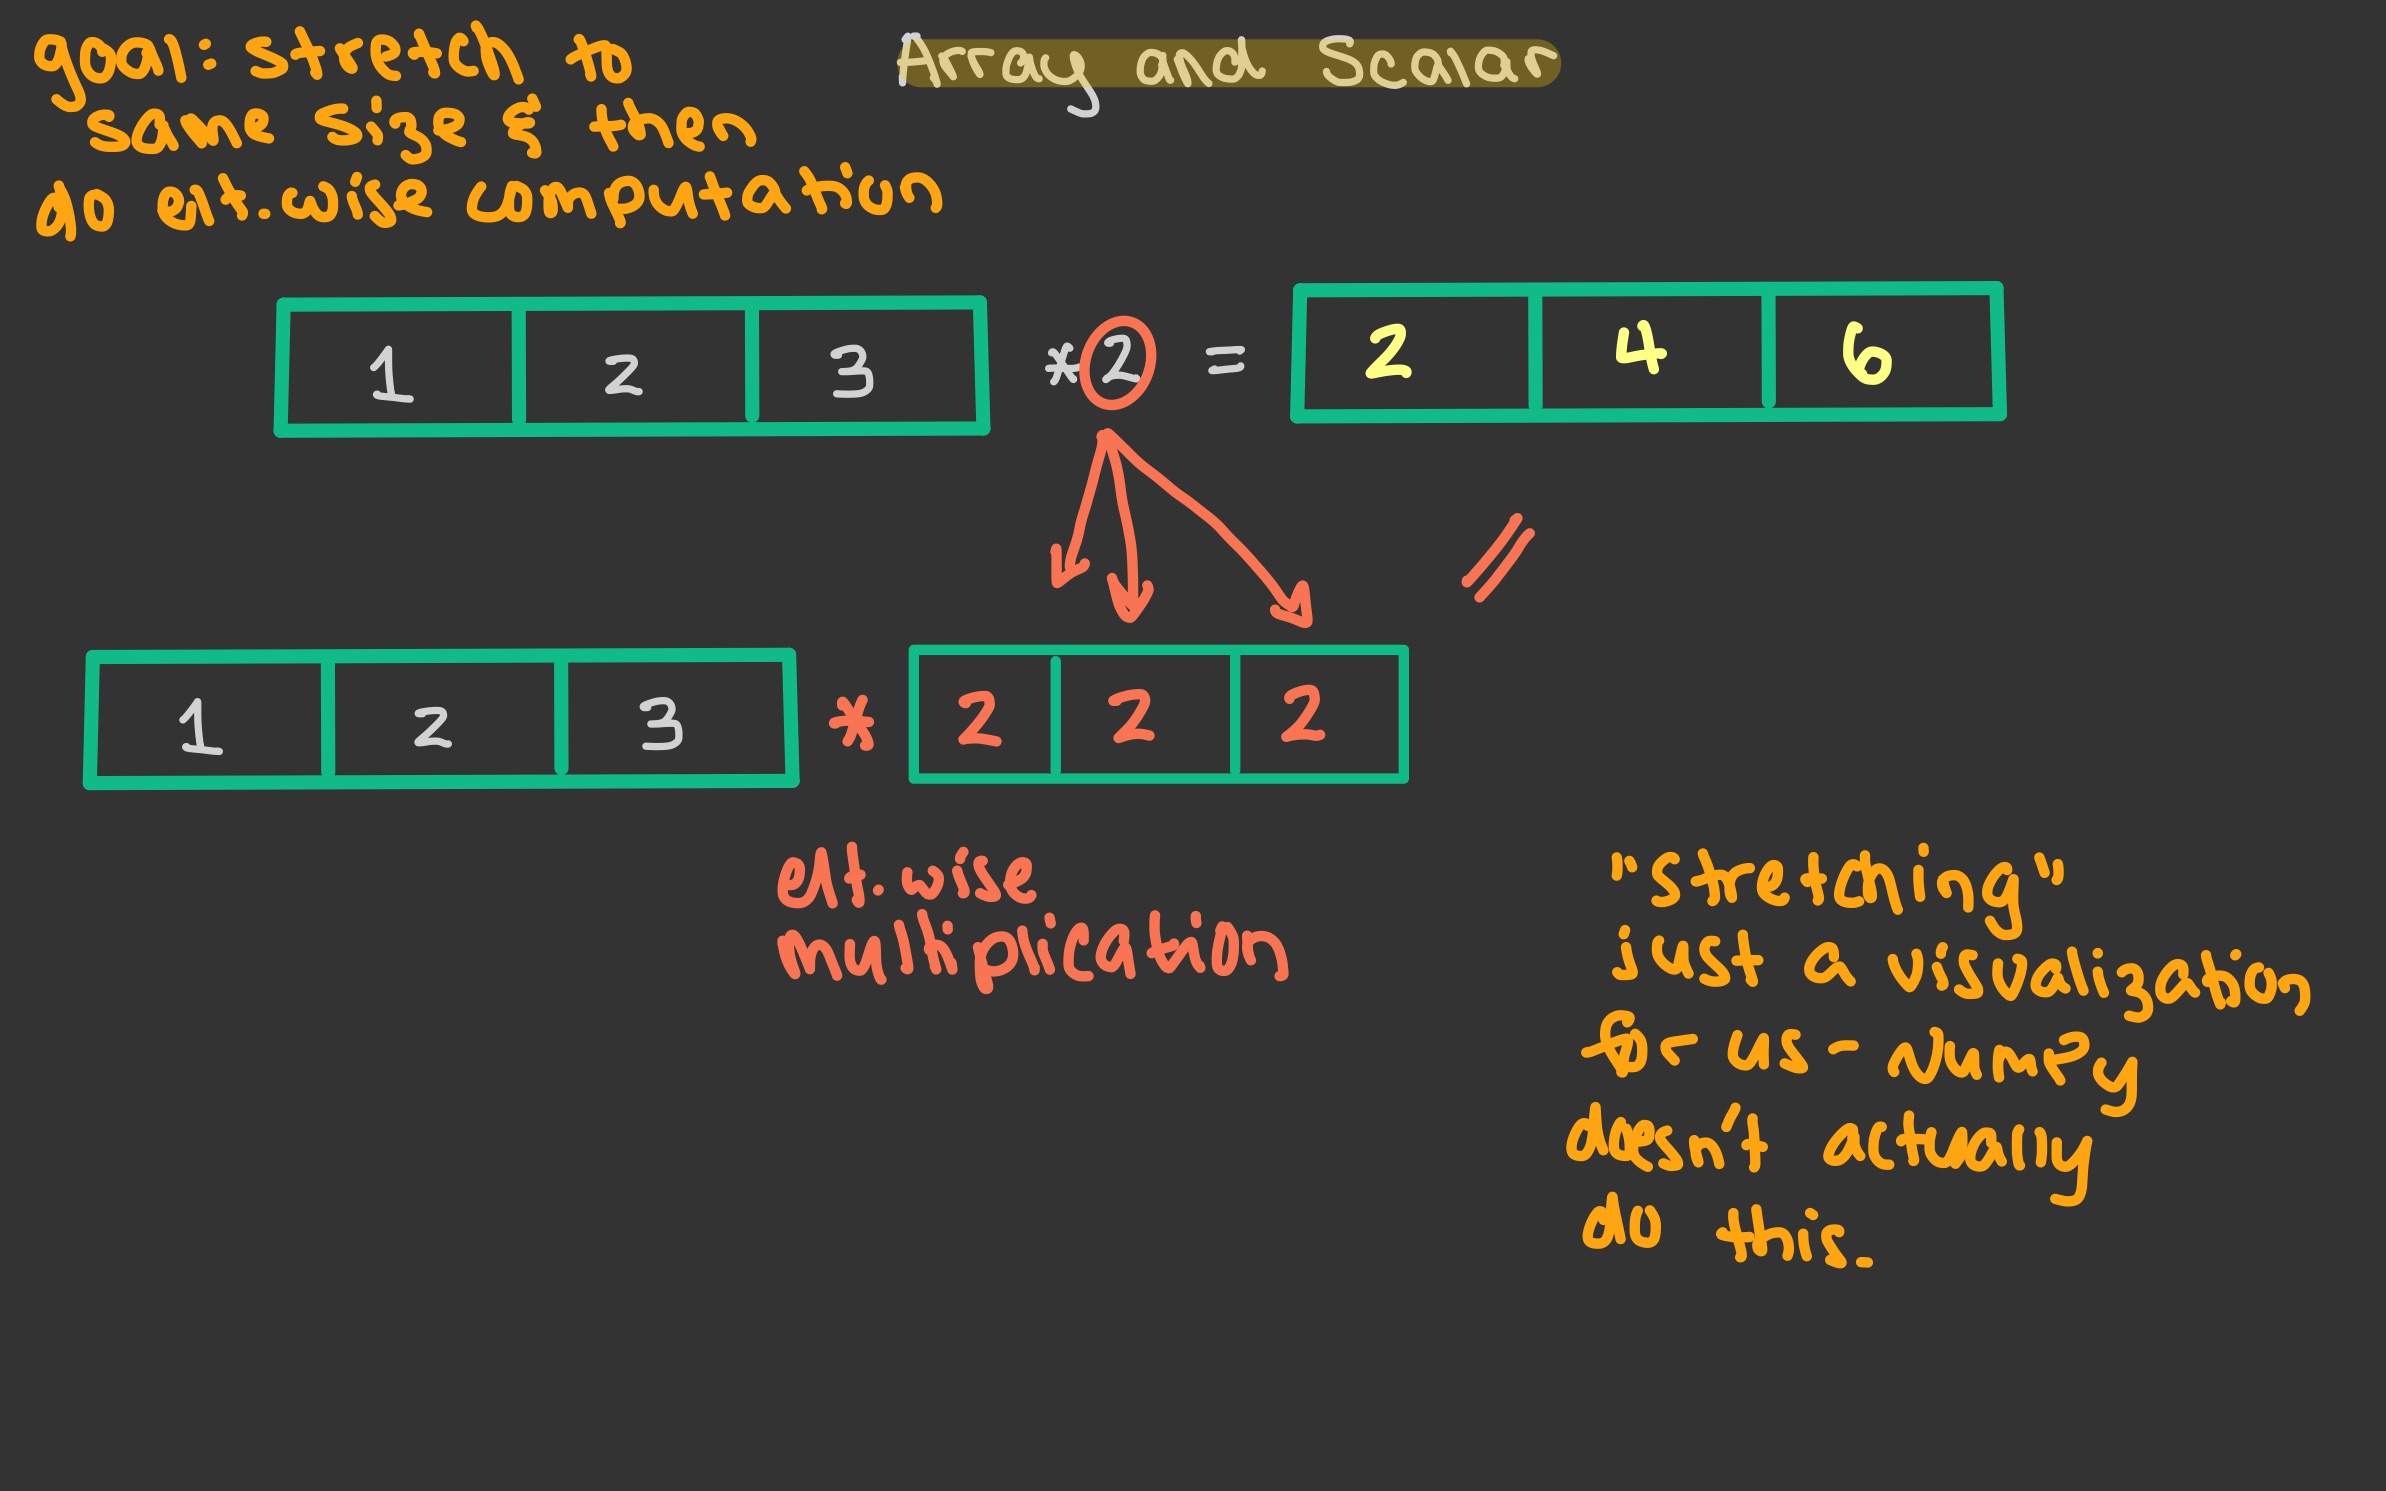 Array and Scalar
goal: stretch to
same size & then
do elt.wise computation
1 2 3 * 2 = 2 4 6
1 2 3 * 2 2 2
elt. wise
multiplication
"stretching"
just a visualization
for us - NumPy
doesn't actually
do this.